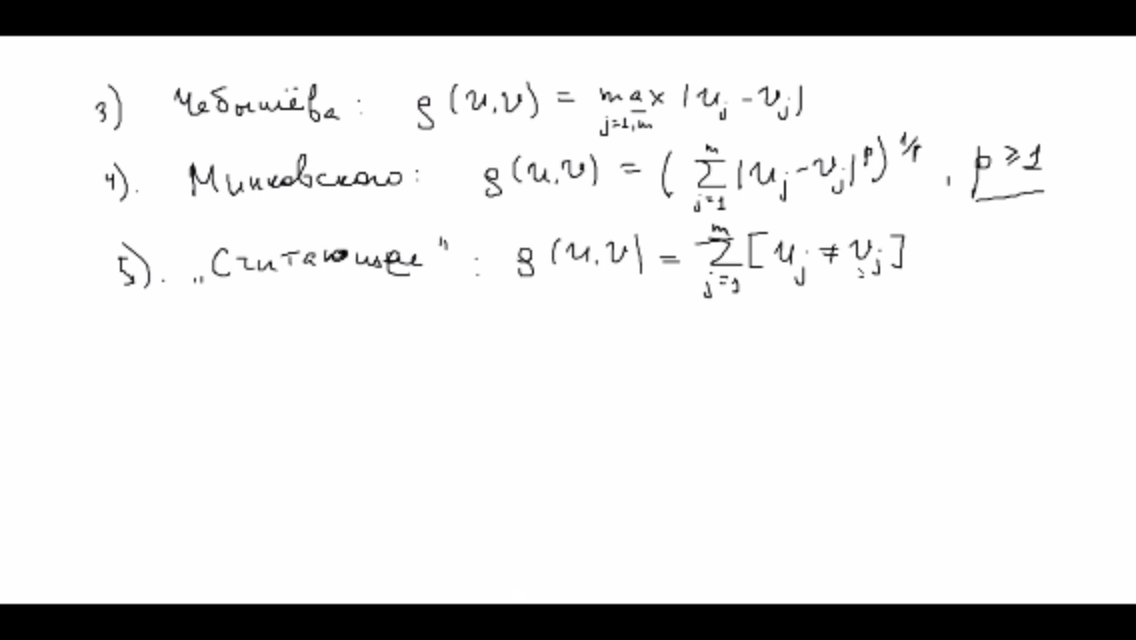 3) Чебышёва: ρ(u,v) = max_{j=1,m} |u_j - v_j|
4). Минковского: ρ(u,v) = (∑_{j=1}^{m} |u_j - v_j|^p)^{1/p}, p ≥ 1
5). „Считающее": ρ(u,v) = ∑_{j=1}^{m} [u_j ≠ v_j]